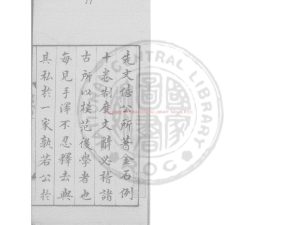 先文僖公所著金石例
十卷制度文辭必稽諸
古所以模范後學者也
每見手澤不忍釋去與
其私於一家孰若公於
CENTRAL LIBRARY